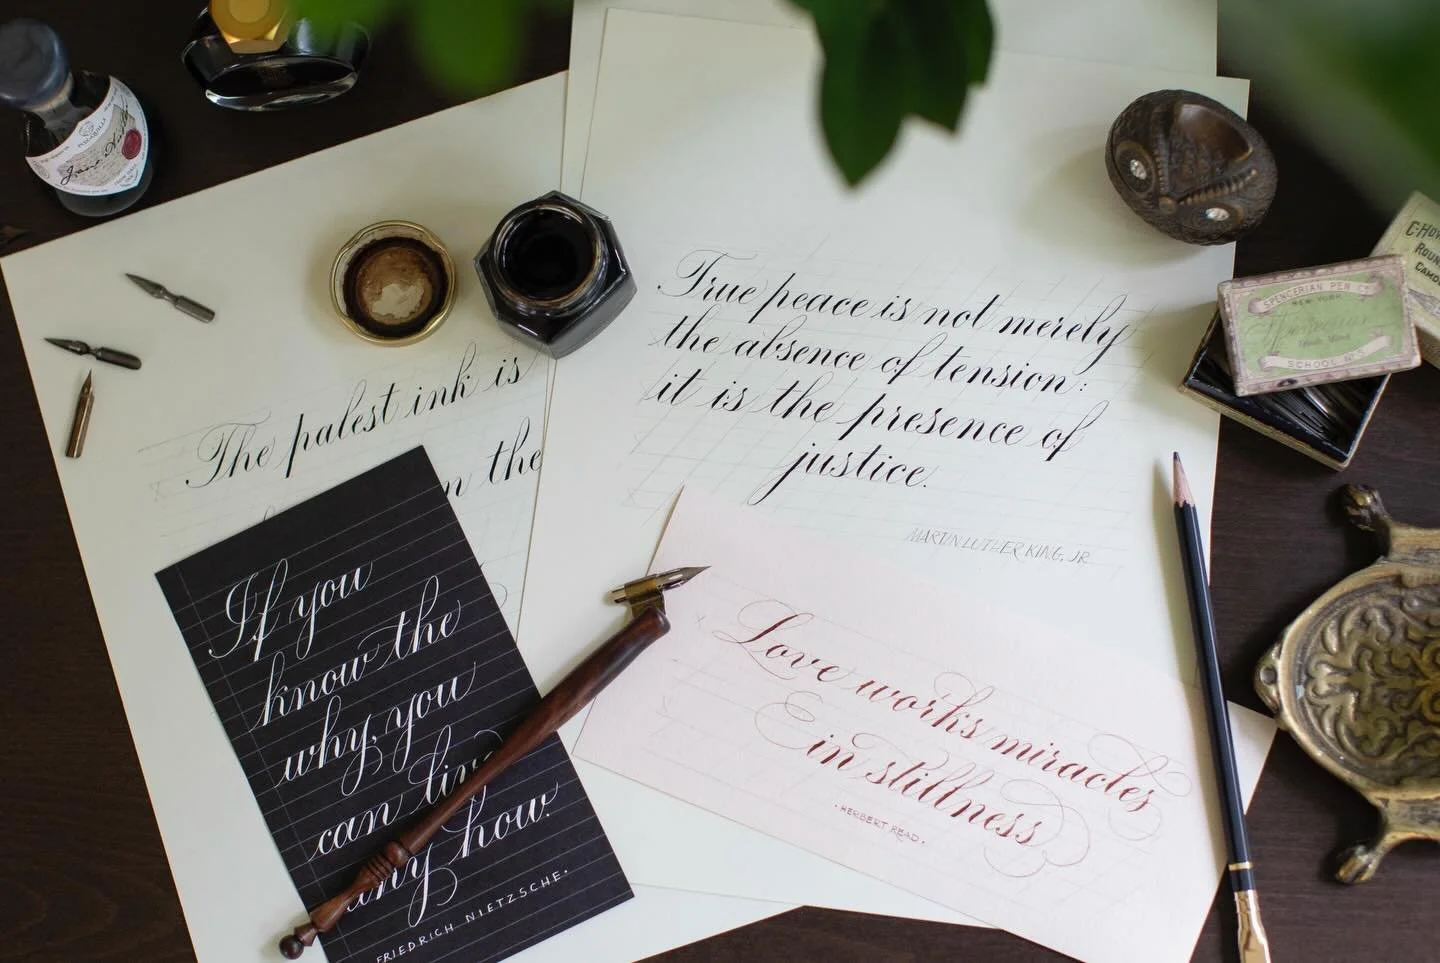 The palest ink is
n the
If you
know the
why, you
can live
any how.
FRIEDRICH NIETZSCHE.
True peace is not merely
the absence of tension:
it is the presence of
justice.
MARTIN LUTHER KING, JR
Love works miracles
in stillness
· HERBERT READ.
SPENCERIAN PEN CO
NEW YORK
SCHOOL No 5
C. HOW
ROUN
CAMD